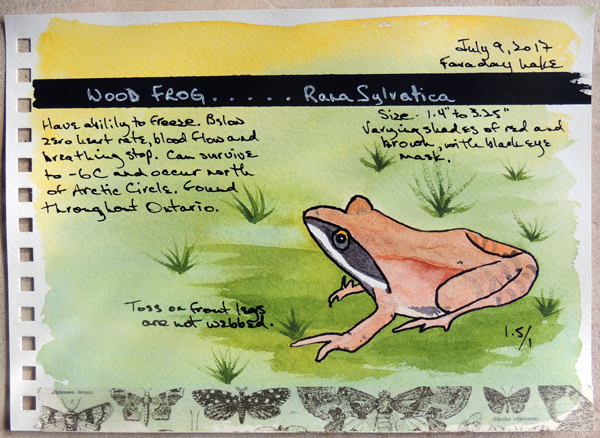 July 9, 2017
Faraday Lake
WOOD FROG . . . . . Rana Sylvatica
Have ability to freeze. Below
zero heart rate, blood flow and
breathing stop. Can survive
to -6C and occur north
of Arctic Circle. Found
throughout Ontario.
Size - 1.4" to 3.25"
Varying shades of red and
brown, with black eye
mask.
Toes on front legs
are not webbed.
1.5/1